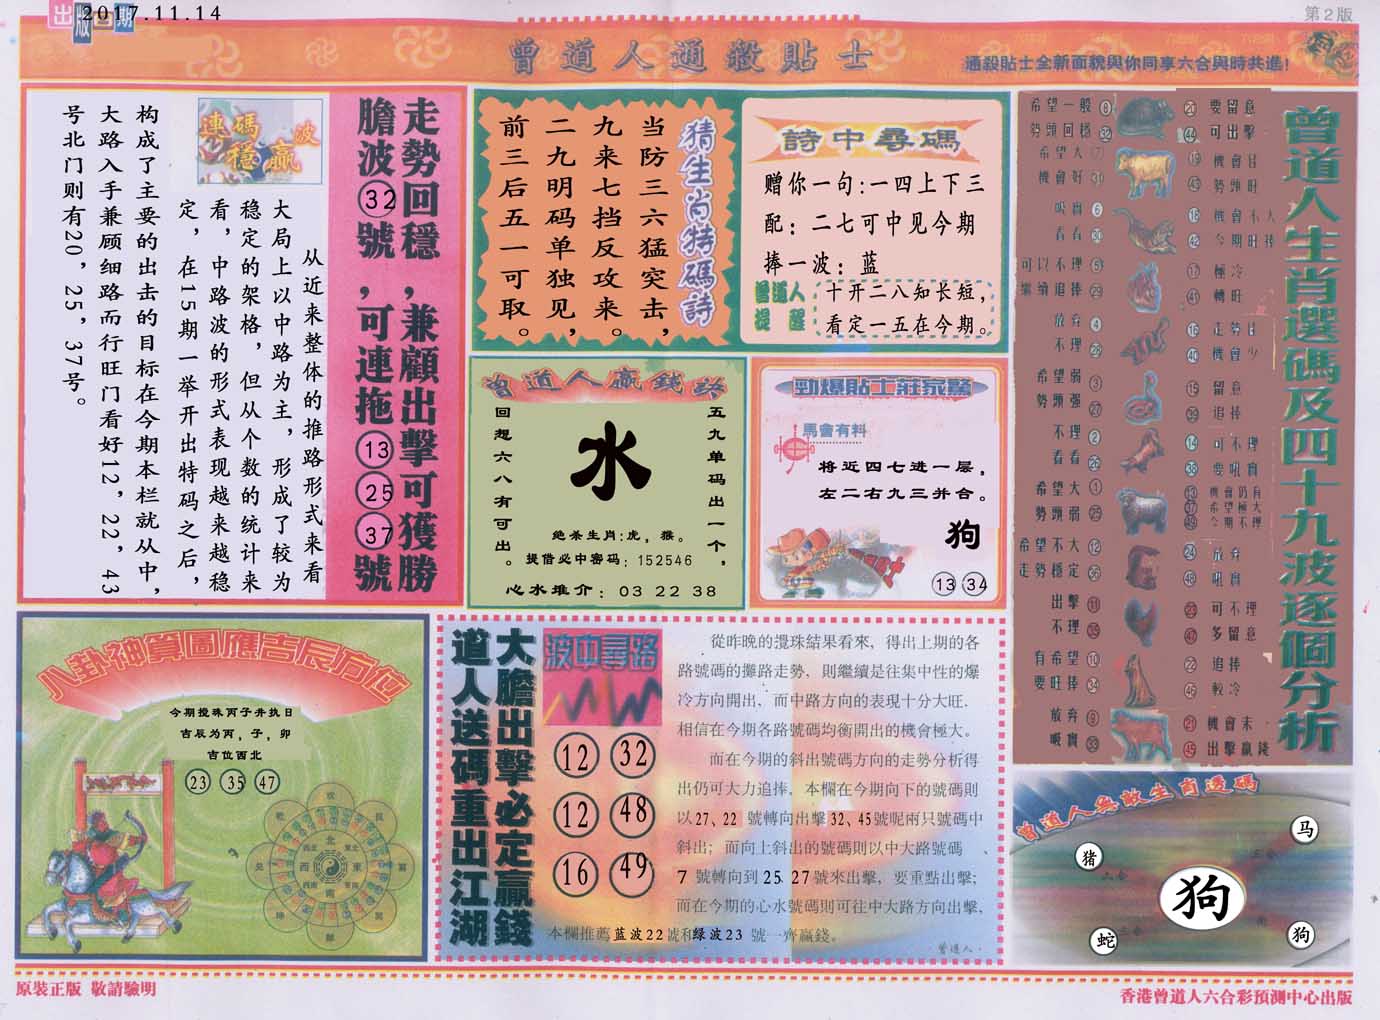 出版日期
2017.11.14
第2版
曾道人通殺貼士
通殺貼士全新面貌與你同享六合與時共進!
走勢回穩,兼顧出擊可獲勝
膽波32號,可連拖13 25 37號
連碼穩贏波
从近来整体的推路形式来看
大局上以中路为主，形成了较为
稳定的架格，但从个数的统计来
看，中路波的形式表现越来越稳
定，在15期一举开出特码之后，
构成了主要的出击的目标在今期本栏就从中，
大路入手兼顾细路而行旺门看好12，22，43
号北门则有20，25，37号。
猜生肖特碼詩
当防三六猛突击，
九来七挡反攻来。
二九明码单独见，
前三后五一可取。
詩中尋碼
赠你一句:一四上下三
配：二七可中见今期
捧一波：蓝
曾道人提醒
十开二八知长短，
看定一五在今期。
曾道人贏錢詩
五九单码出一个，
回想六八有可出。
水
绝杀生肖:虎，猴。
提借必中密码：152546
心水推介：03 22 38
勁爆貼士莊家驚
馬會有料
将近四七进一层，
左二右九三并合。
狗
13 34
曾道人生肖選碼及四十九波逐個分析
希望一般 8
勢頭回穩 32
希望大
機會好 31
吸實 6
看看 30
可以不理 5
繼續追捧 29
放弃 4
不理 28
希望弱 3
勢頭强 27
不理 2
看看 26
希望大 1
勢頭弱 25
希望不大 12
走勢穩定 36
出擊 11
不理 35
有希望 10
要旺捧 34
放弃 9
吸實 33
20 要留意
44 可出擊
19 機會佳
43 勢頭旺
18 機會不大
42 今期旺捧
17 極冷
41 轉旺
16 走勢佳
40 機會少
15 留意
39 追捧
14 可不理
38 要吼實
13 機會仍有
37 希望極大
49 今期不理
24 放弃
48 吼實
23 可不理
47 多留意
22 追捧
46 較冷
21 機會末
45 出擊贏錢
八卦神算圖應吉辰方位
今期搅珠丙子井执日
吉辰为丙，子，卯
吉位西北
23 35 47
大膽出擊必定贏錢
道人送碼重出江湖
波中尋路
12 32
12 48
16 49
從昨晚的攪珠結果看來，得出上期的各
路號碼的攤路走勢，則繼續是往集中性的爆
冷方向開出，而中路方向的表現十分大旺．
相信在今期各路號碼均衡開出的機會極大。
而在今期的斜出號碼方向的走勢分析得
出仍可大力追捧，本欄在今期向下的號碼則
以27、22 號轉向出擊32、45號呢兩只號碼中
斜出；而向上斜出的號碼則以中大路號碼、
7 號轉向到25 27號來出擊，要重點出擊；
而在今期的心水號碼則可往中大路方向出擊，
本欄推薦蓝波22號和绿波23 號一齊贏錢。
曾道人·
曾道人無敵生肖透碼
马
猪
狗
蛇
狗
原裝正版 敬請驗明
香港曾道人六合彩預測中心出版